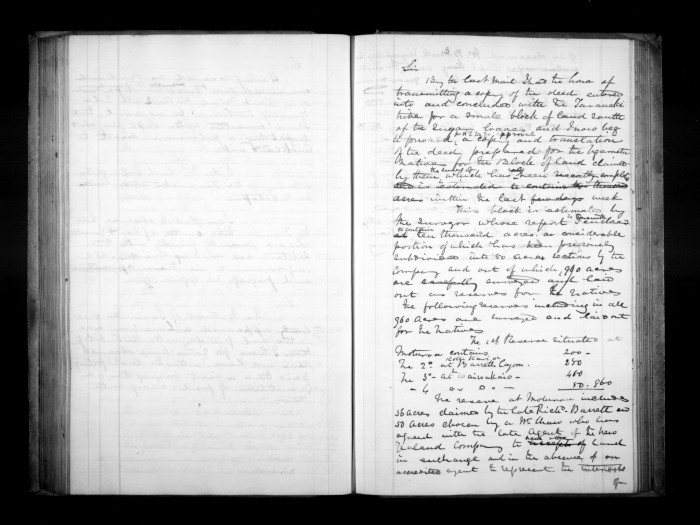 Sir
By the last Mail I had the honor of
transmitting a copy of the deed entered
into and concluded with the Taranaki
tribe for a small block of land South
of the Sugar loaves and I now beg
to forward a copy and translation
of the deed prepared for the
Natives for the Block of land claimed
by them which has been recently completed
and is estimated to contain ten thousand
acres within the last few days week
This block is estimated by
the surveyor whose report I enclose
at ten thousand acres a considerable
portion of which has been previously
subdivided into 50 acre sections by the
Company and out of which 960 acres
are carefully surveyed and laid
out as reserves for the Natives
The following reserves including in all
960 acres are surveyed and laid out
for the Natives
The 1st Reserve situated at
Moturoa contains 200 -
The 2d at Barretts Lagoon 250
The 3d - at Waiwakaio - 460
- 4 or D° - 50. 960
The reserve at Moturoa includes
56 acres claimed by the late Richd Barrett and
50 acres chosen by a Mr who has
agreed with the late Agent of the New
Zealand Company to land
in exchange and in the absence of an
accredited agent to represent the interests
of